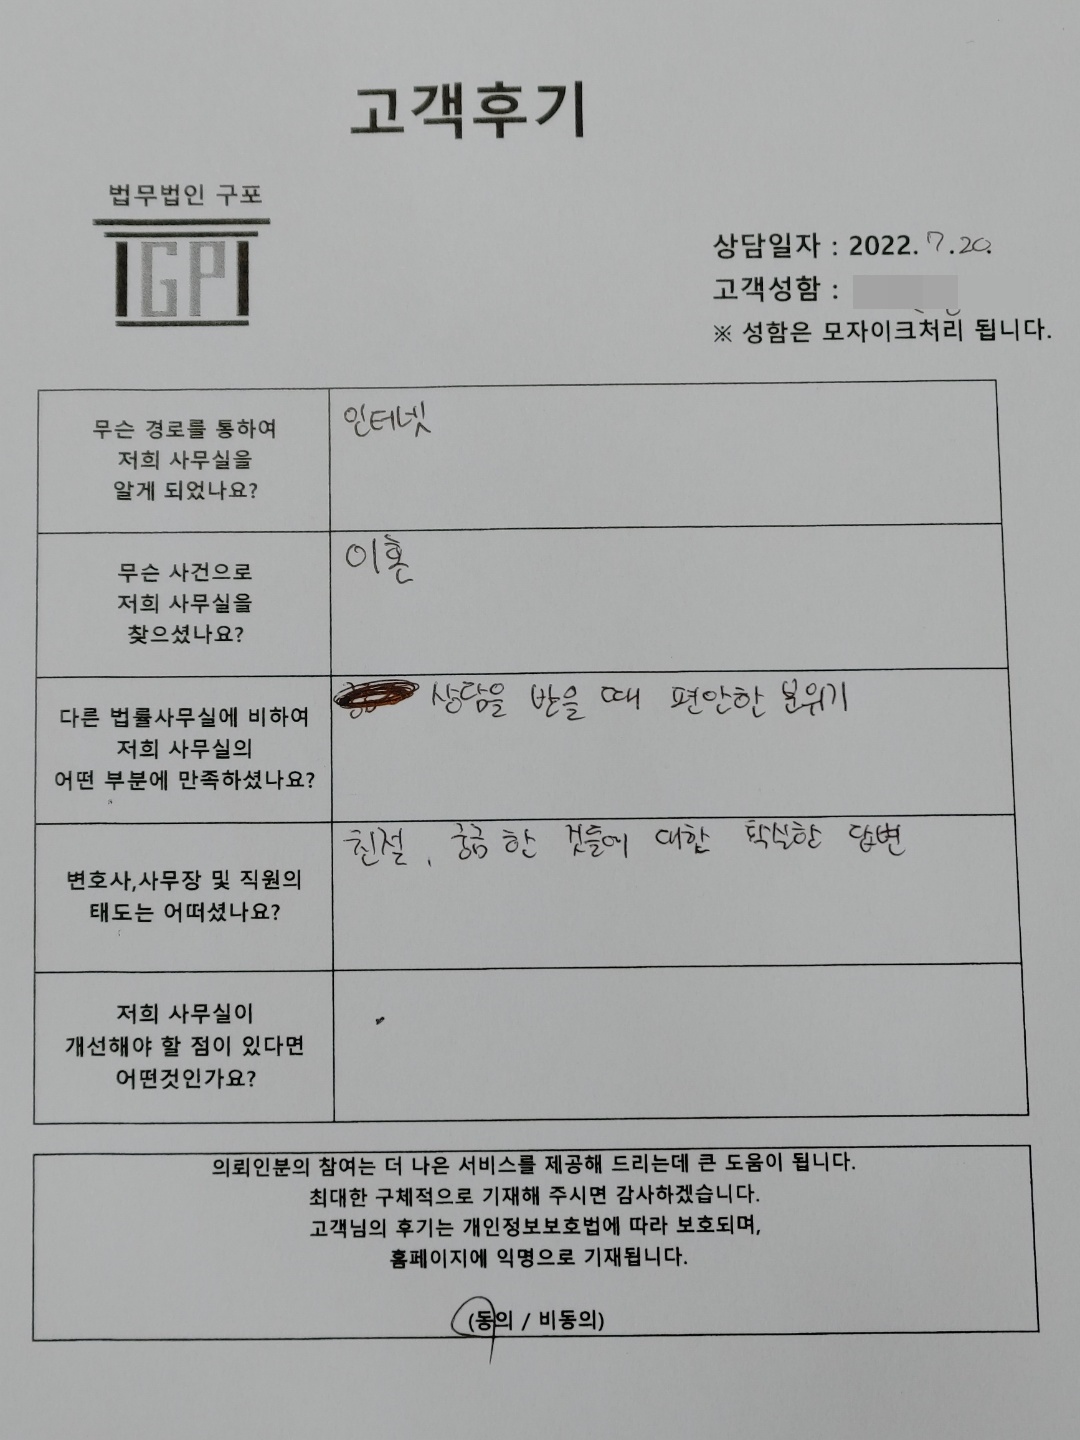 고객후기
법무법인 구포
GP
상담일자 : 2022.7.20.
고객성함 :
※ 성함은 모자이크처리 됩니다.
무슨 경로를 통하여
저희 사무실을
알게 되었나요?
인터넷
무슨 사건으로
저희 사무실을
찾으셨나요?
이혼
다른 법률사무실에 비하여
저희 사무실의
어떤 부분에 만족하셨나요?
상담을 받을 때 편안한 분위기
변호사,사무장 및 직원의
태도는 어떠셨나요?
친절, 궁금한 것들에 대한 확실한 답변
저희 사무실이
개선해야 할 점이 있다면
어떤것인가요?
의뢰인분의 참여는 더 나은 서비스를 제공해 드리는데 큰 도움이 됩니다.
최대한 구체적으로 기재해 주시면 감사하겠습니다.
고객님의 후기는 개인정보보호법에 따라 보호되며,
홈페이지에 익명으로 기재됩니다.
(동의 / 비동의)